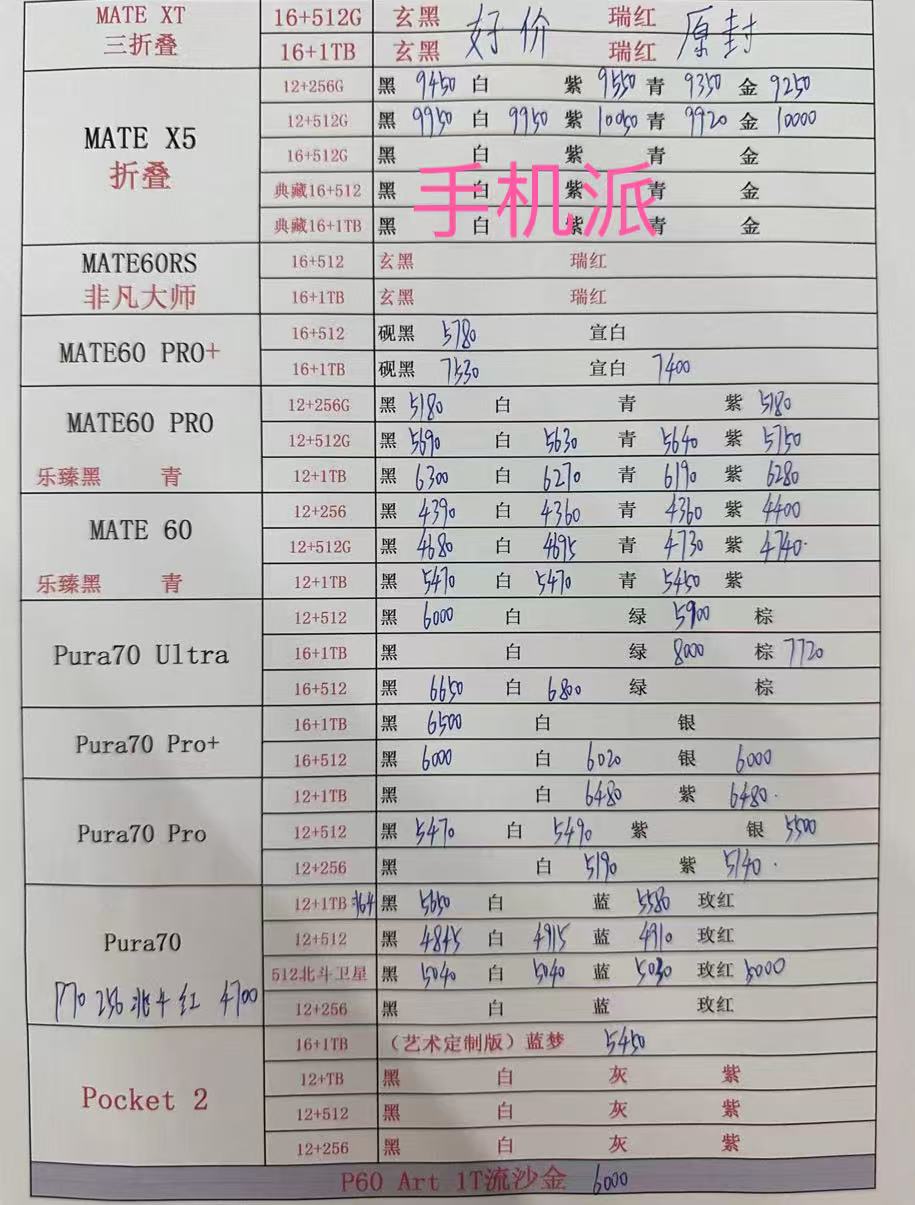 MATE XT 16+512G 玄黑 好价 瑞红 原封
三折叠 16+1TB 玄黑 瑞红
12+256G 黑 9450 白 紫 9550 青 9350 金 9250
MATE X5 12+512G 黑 9950 白 9950 紫 10050 青 9920 金 10000
折叠 16+512G 黑 白 紫 青 金
手机派
典藏16+512 黑 白 紫 青 金
典藏16+1TB 黑 白 紫 青 金
MATE60RS 16+512 玄黑 瑞红
非凡大师 16+1TB 玄黑 瑞红
MATE60 PRO+ 16+512 砚黑 5780 宣白
16+1TB 砚黑 7530 宣白 7400
12+256G 黑 5180 白 青 紫 5180
MATE60 PRO 12+512G 黑 5690 白 5630 青 5640 紫 5750
乐臻黑 青 12+1TB 黑 6300 白 6270 青 6190 紫 6280
12+256 黑 4390 白 4360 青 4360 紫 4400
MATE 60 12+512G 黑 4680 白 4695 青 4730 紫 4740
乐臻黑 青 12+1TB 黑 5470 白 5470 青 5450 紫
12+512 黑 6000 白 绿 5900 棕
Pura70 Ultra 16+1TB 黑 白 绿 8000 棕 7720
16+512 黑 6650 白 6800 绿 棕
Pura70 Pro+ 16+1TB 黑 6500 白 银
16+512 黑 6000 白 6020 银 6000
12+1TB 黑 白 6480 紫 6480
Pura70 Pro 12+512 黑 5470 白 5490 紫 银 5500
12+256 黑 白 5190 紫 5140
12+1TB 北斗 黑 5650 白 蓝 5580 玫红
Pura70 12+512 黑 4845 白 4915 蓝 4910 玫红
512北斗卫星 黑 5040 白 5040 蓝 5030 玫红 5000
P70 256 北斗 红 4700 12+256 黑 白 蓝 玫红
16+1TB (艺术定制版)蓝梦 5450
Pocket 2 12+TB 黑 白 灰 紫
12+512 黑 白 灰 紫
12+256 黑 白 灰 紫
P60 Art 1T流沙金 6000